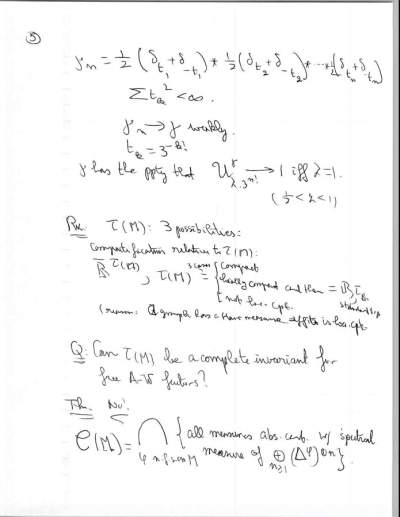 ⑤
γₙ = 1/2 (δ_{t₁} + δ_{-t₁}) * 1/2 (δ_{t₂} + δ_{-t₂}) * ... * 1/2 (δ_{tₙ} + δ_{-tₙ})
Σ t_k² < ∞.
γₙ → γ weakly.
t_k = 3^{-k!}
γ has the ppty that U^γ_{λ·3^{n!}} → 1 iff λ=1.
(1/3 < λ < 1)
Rk. τ(M): 3 possibilities:
Complete location relative to τ(M):
ℝ^{τ(M)}, τ(M) = 3 cases { compact
locally compact and then = ℝ, standard top
not loc. cpt.
(reason: a group has a Haar measure iff it is loc. cpt
Q: Can τ(M) be a complete invariant for
free A-W factors?
Th. No!
C(M) = ∩_{φ n.f.s. on M} {all measures abs. cont. w/ spectral
measure of ⊕_{n≥1} (Δ^φ)^{⊗n}}.